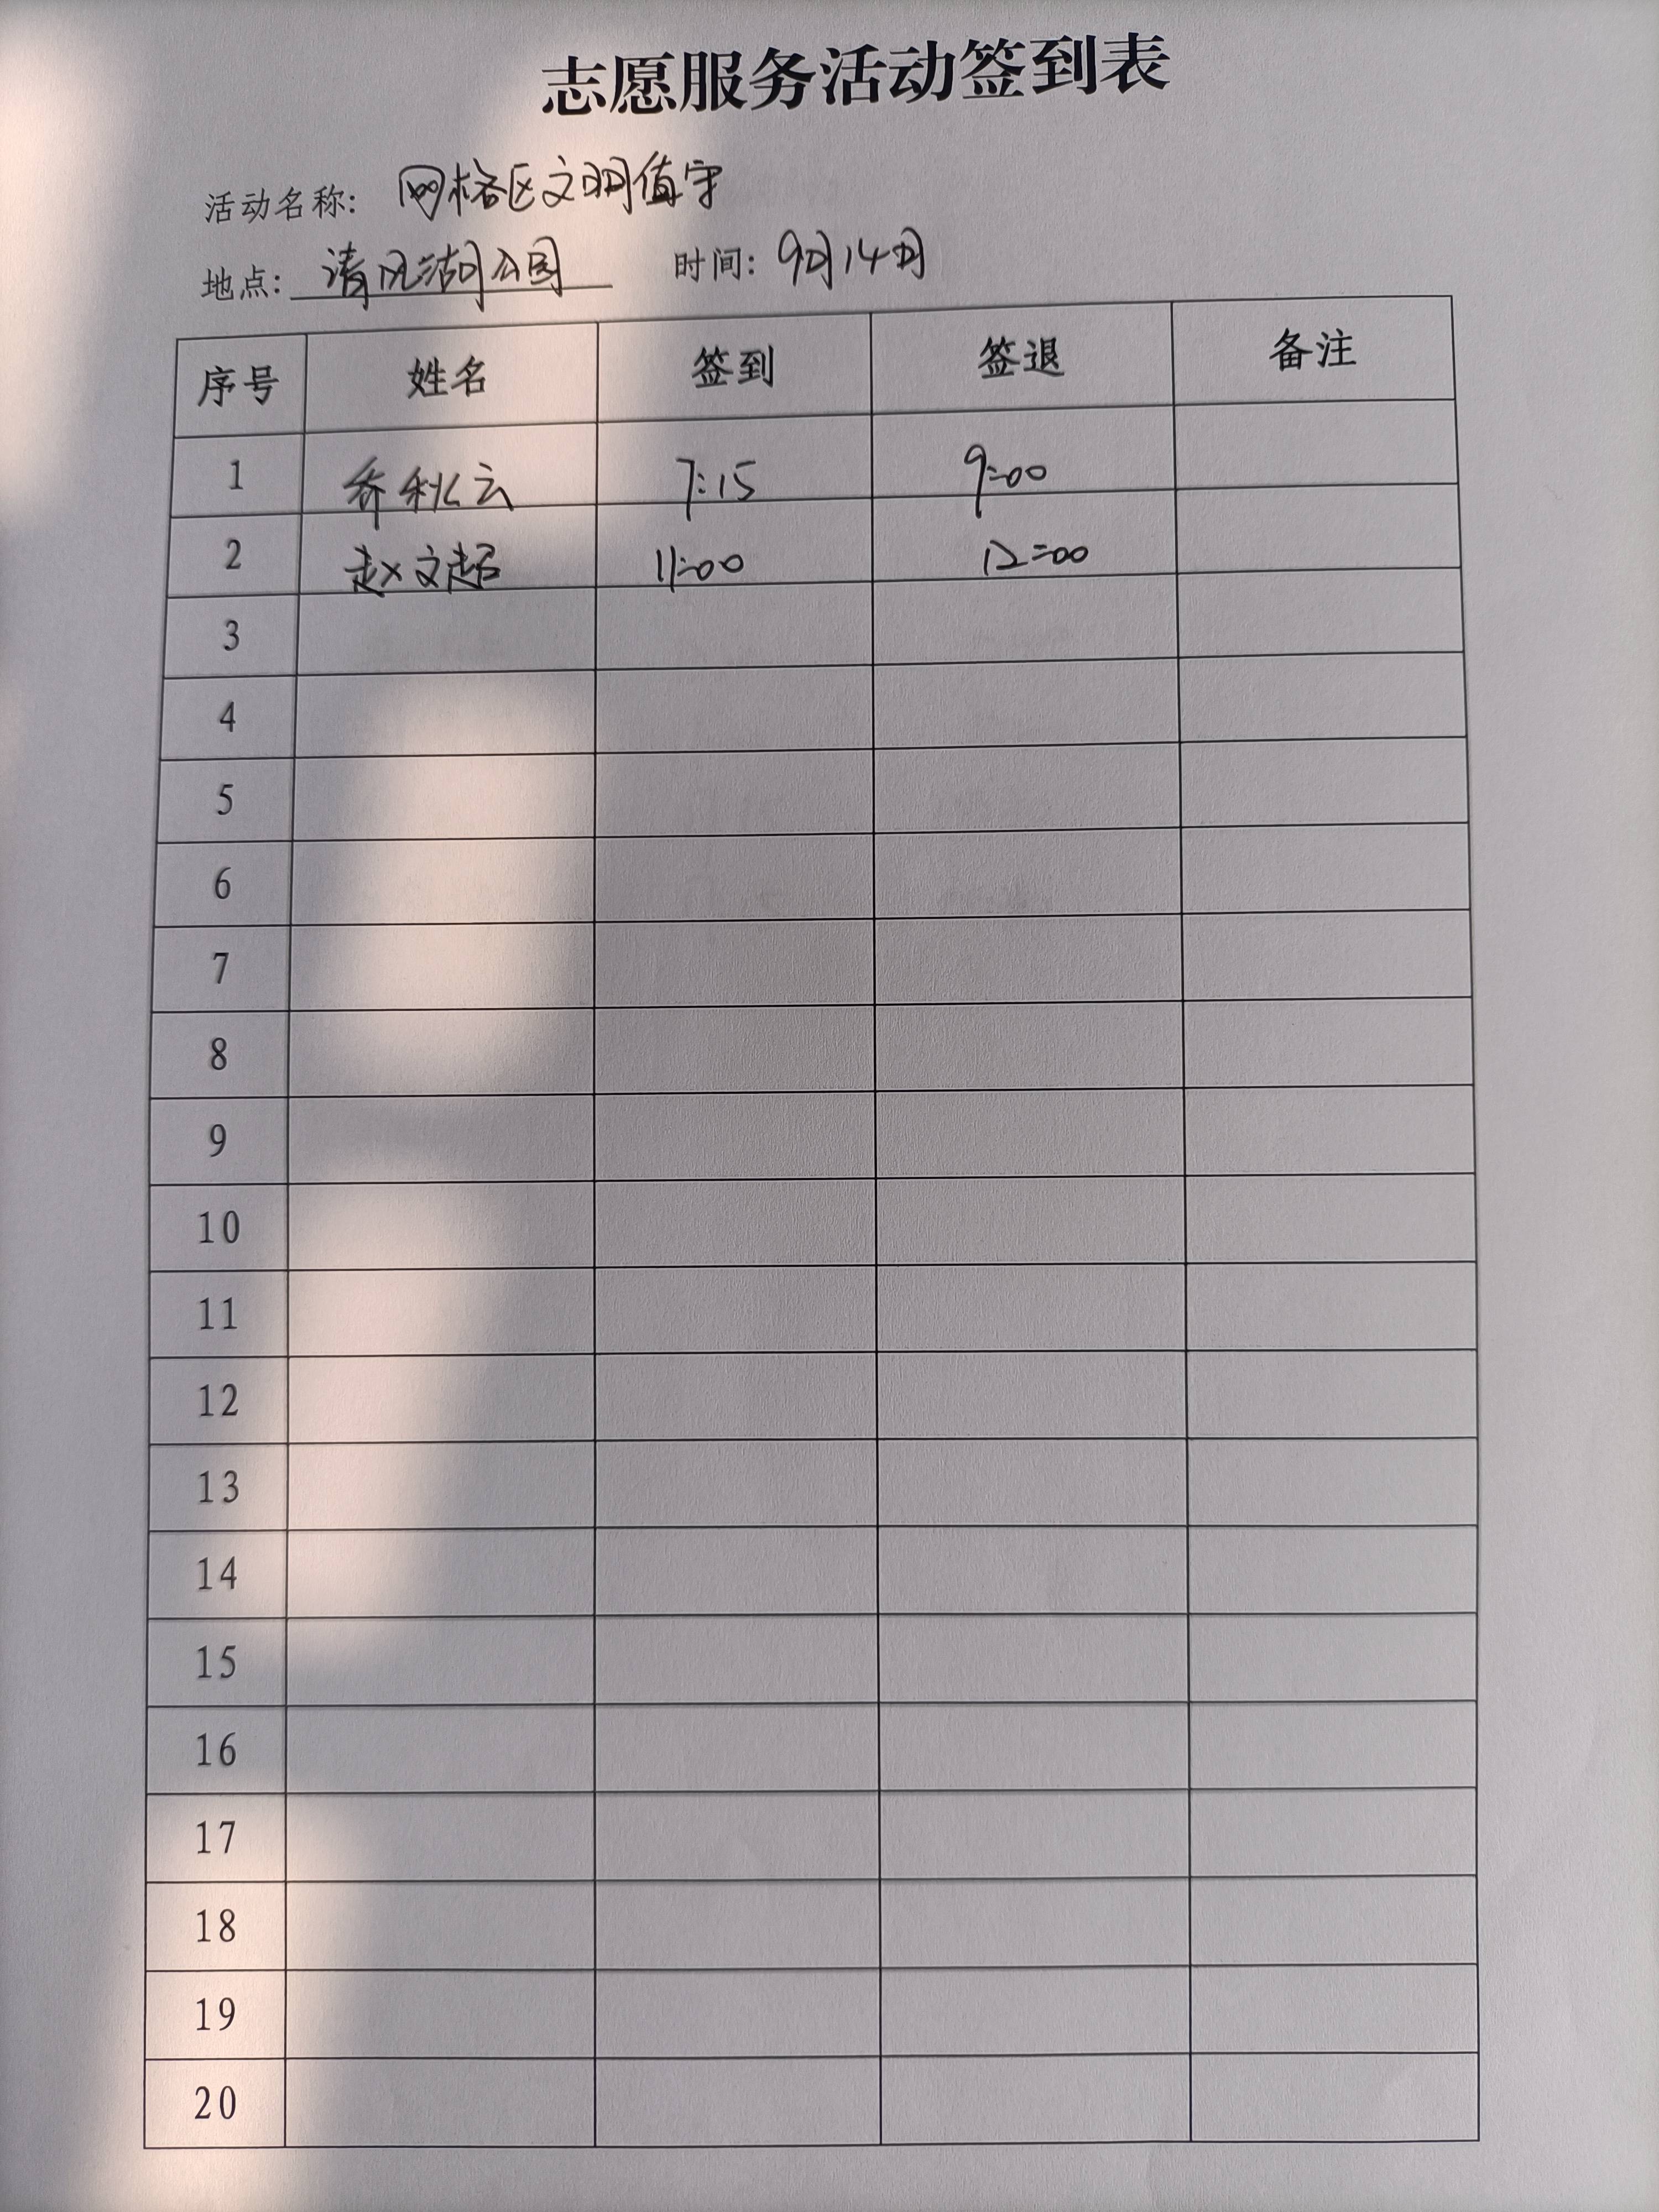 志愿服务活动签到表
活动名称: 网格区文明值守
地点: 清风湖公园 时间: 9月14日
序号 姓名 签到 签退 备注
1 乔秋云 7:15 9:00
2 赵文超 11:00 12:00
3
4
5
6
7
8
9
10
11
12
13
14
15
16
17
18
19
20